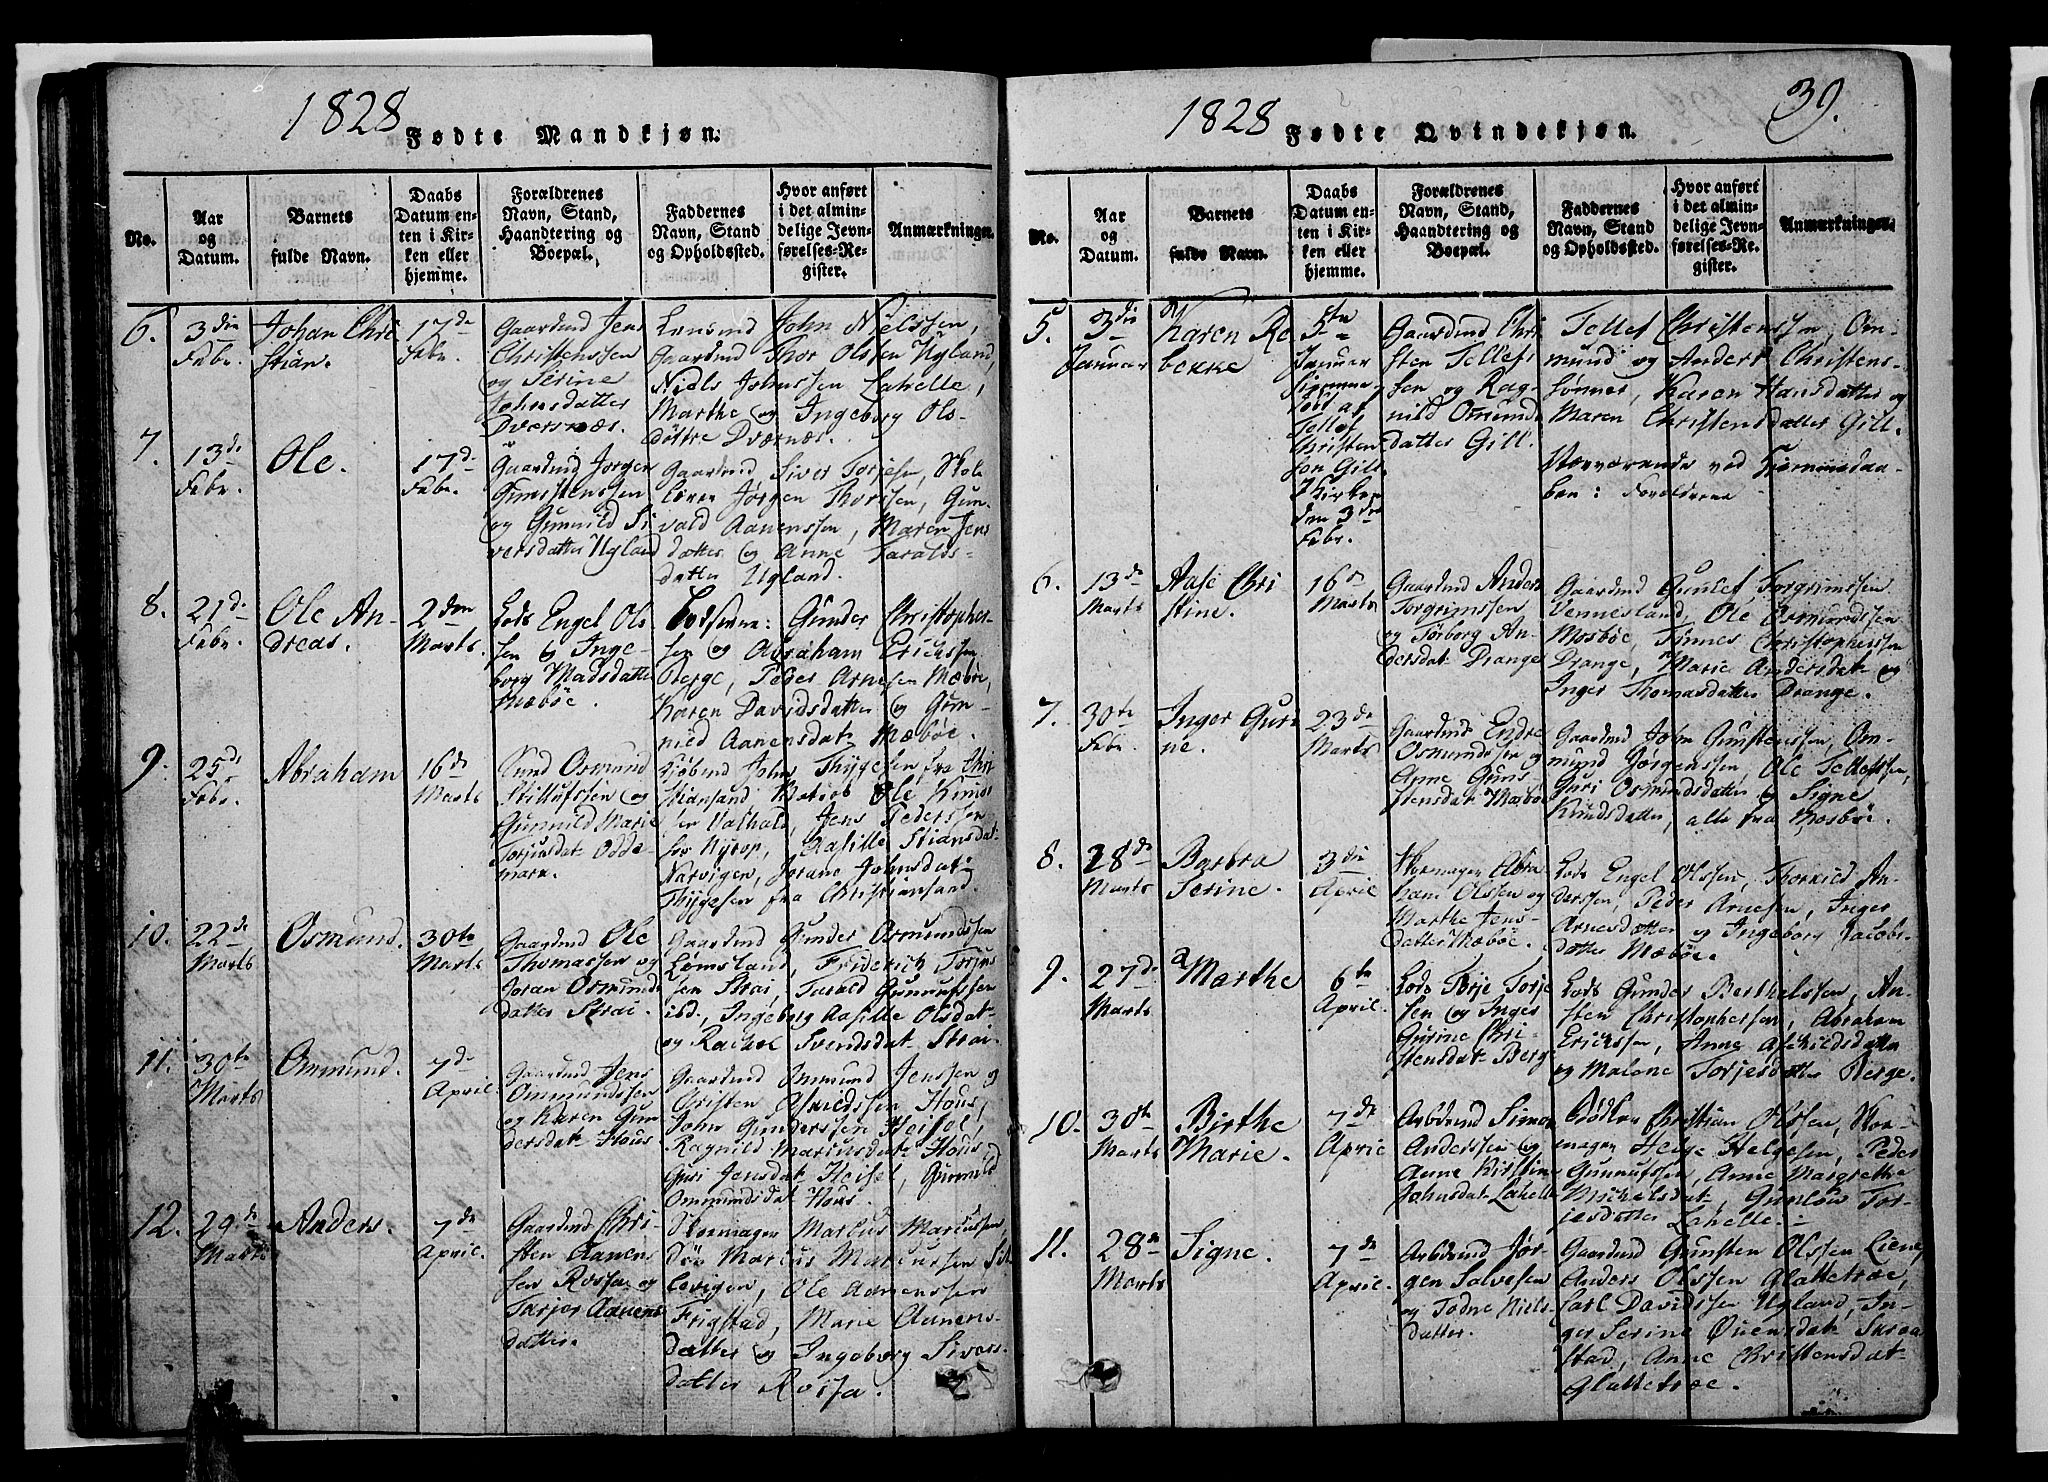 1828 Fødte Mandkjøn.
No.
Aar
og
Datum.
Barnets
fulde Navn.
Daabs
Datum en-
ten i Kir-
ken eller
hjemme.
Forældrenes
Navn, Stand,
Haandtering og
Boepæl.
Faddernes
Navn, Stand
og Opholdssted.
Hvor anført
i det almin-
delige Jevn-
førelses-Re-
gister.
Anmærkninger.
6.
3die
Febr.
Johan Chri
stian.
17de
Febr.
Gaardmd Jens
Christenssen
og Serine
Johnsdatter
Dversnæs.
John Nielssen,
Gaardmd Thor Olsen Ugland,
Niels Johnssen Lahelle,
Marthe og Ingeborg Ols-
døttre Dværnæs.
7.
13de
Febr.
Ole.
17de
Febr.
Gaardmd Jørgen
Gunstenssen
og Gunnild Si
versdatter Ugland
Gaardmd Siver Torjesen, Skole
lærer Jørgen Thorssen, Gun-
vald Aanenssen, Maren Jens
datter og Anne Taralds-
datter Ugland.
8.
21de
Febr.
Ole An-
dreas.
2den
Marts.
Lods Engel Ols
sen & Inge-
borg Madsdatter
Mæbøe.
Lodserne: Gunder Christopher-
sen og Abraham Erichssen
Berge, Peder Arnesen Mæbøe,
Karen Davidsdatter og Gun-
nild Aanensdatr Mæbøe.
9.
25de
Febr.
Abraham
16de
Marts
Osmund
Stillufssen og
Gunnild Marie
Torjusdatr Odder
næs.
Kjøbmd John Thygesen fra Chri
stiansand, Ole Knud
sen Valhald, Jens Pederssen
Aasille Stiansdatr
Narvigen, Jorane Johnsdatr
Thygesen fra Christiansand.
10.
22de
Marts
Osmund.
30te
Marts
Gaardmd Ole
Thomassen og
Joran Osmunds
datter Strai.
Gaardmd Gunder Osmundssen
Lømsland, Friderich Torjus
sen Strai, Tarald Gunnufssen
ibd., Ingeborg Aasille Olsdatr
og Rachel Svendsdatr Strai.
11.
30te
Marts
Ommund.
7de
April.
Gaardmd Jens
Ommundssen
og Karen Gun
dersdatr Hous
Gaardmd Ommund Jenssen og
Christen Hous,
John Gunderssen Heisel,
Ragnild Mariusdatr Hous,
Guri Jensdatr Heisel, Gunnild
Ommundsdatr Hous.
12.
29de
Marts
Anders.
7de
April.
Gaardmd Chri
sten Aanens
sen Rossen og
Tarjer Aanens
datter.
Skomager Marcus Marcussen
Marcus Marcussen
Ole Aanenssen
Frigstad, Marie Aanens-
datter og Ingeborg Sivers
datter Rossa.
1828 Fødte Qvindekjøn.
39.
No.
Aar
og
Datum.
Barnets
fulde Navn.
Daabs
Datum en-
ten i Kir-
ken eller
hjemme.
Forældrenes
Navn, Stand,
Haandtering og
Boepæl.
Faddernes
Navn, Stand
og Opholdssted.
Hvor anført
i det almin-
delige Jevn-
førelses-Re-
gister.
Anmærkninger.
5.
3die
Januar
Karen Re
bekke
5te
Januar
hjemme
døbt af
Tellef
Christen
sen Gill
I Kirken
den 3die
Febr.
Gaardmd Chri
sten Tellefs
sen og Rag-
nild Osmunds
datter Gill.
Tellef Christenssen, Om-
mund og Anders Christens-
sønner, Karen Hansdatter og
Maren Christensdatter Gill.
Nærværende ved Hjemmedaa-
ben: Forældrene
6.
13de
Marts
Aase Chri
stine.
16de
Marts
Gaardmd Anders
Torgrimssen
og Tørborg An-
dersdatr Drange
Gaardmd Gunlef Torgrimssen
Vennesland, Ole Osmundssen
Mosbøe, Tønnes Christophersen
Drange, Marie Andersdatr og
Inger Thomasdatter Drange.
7.
30te
Febr.
Inger Guri
ne.
23de
Marts
Gaardmd Endre
Osmundssen og
Anne Guns
stensdatr Mosbøe
Gaardmd Jørn Gunstenssen, Om-
mund Jørgenssen, Ole Tellefssen,
Guri Osmundsdatter og Signe
Knudsdatter, alle fra Mosbøe.
8.
28de
Marts
Barbra
Serine.
3die
April
Skomager Abra
ham Olssen og
Marthe Jens-
datter Mæbøe.
Lods Engel Olssen, Thorkild An-
derssen, Peder Arnesen, Inger
Arnesdatter og Ingeborg Jacobs-
datter Mæbøe.
9.
27de
Marts
Marthe
6te
April.
Lods Terje Torje
sen og Inger
Gurine Chri-
stensdatr Berge
Lods Gunder Berthelssen, An-
sten Christophersen, Abraham
Erichssen, Anne Aschildsdatter
og Malene Torjesdatter Berge.
10.
30te
Marts
Birthe
Marie.
7de
April
Arbdsmd Simon
Anderssen og
Anne Kirstine
Johnsdatr Lahelle
Bødker Christian Olssen, Sko-
mager Helge Helgesen, Peder
Gunnufssen, Anne Margrethe
Michelsdatr, Gunlou Tor-
jesdatter Lahelle.
11.
28de
Marts
Signe.
7de
April.
Arbdsmd Jør-
gen Salvesen
og Todne Niels-
datter.
Gaardmd Gunsten Olssen Liene,
Anders Olssen Glattetræe,
Carl Davidssen Ugland, In-
ger Serine Øvensdatr Skraa
stad, Anne Christensdatr
Glattetræe.